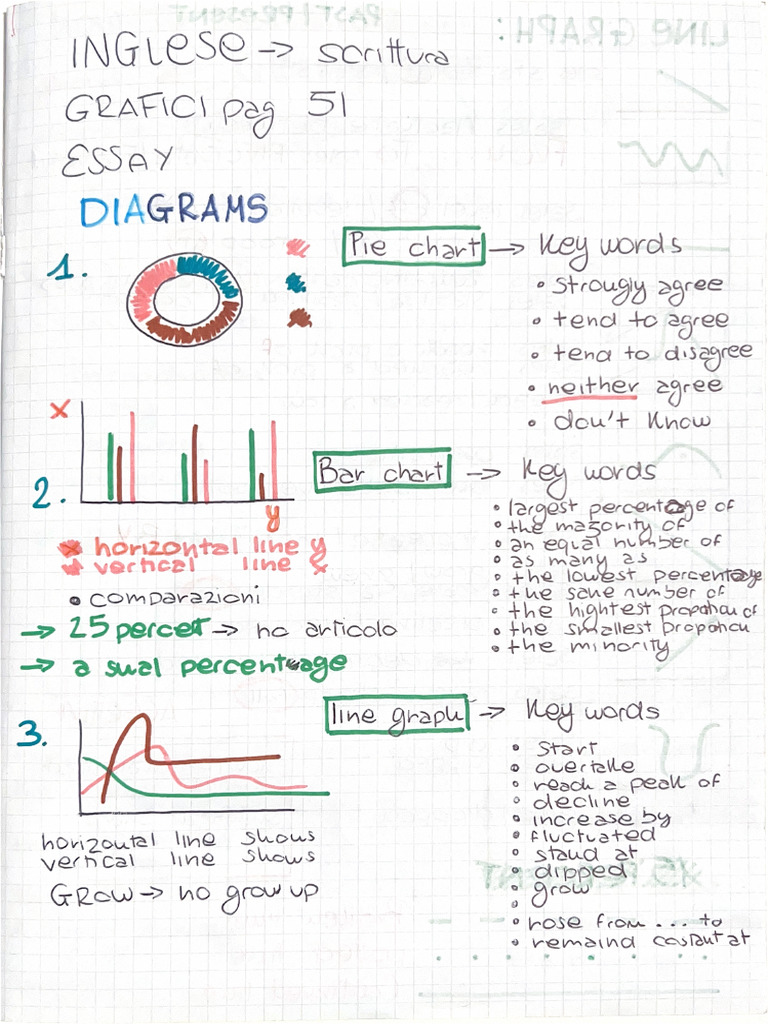 INGLESE → scrittura
GRAFICI pag 51
ESSAY
DIAGRAMS
1.
Pie chart → Key words
• strongly agree
• tend to agree
• tend to disagree
• neither agree
• don't know
x
2.
y
Bar chart → Key words
• largest percentage of
• the majority of
• an equal number of
• as many as
• the lowest percentage
• the same number of
• the hightest propotion of
• the smallest propotion
• the minority
x horizontal line y
vertical line x
• comparazioni
→ 25 percet → no articolo
→ a sual percentage
3.
line graph → Key words
• start
• overtake
• reach a peak of
• decline
• increase by
• fluctuated
• stand at
• dipped
• grow
• rose from ... to
• remaind costant at
horizontal line shows
vertical line shows
GROW → no grow up
LINE GRAPH:
PAST | PRESENT